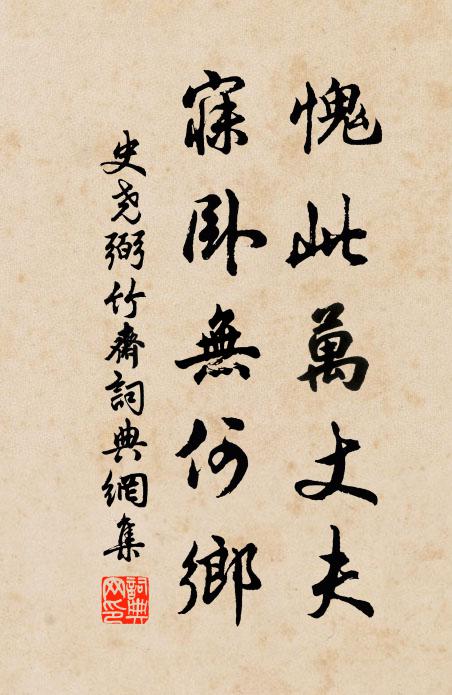 愧此萬丈夫
寐臥無何鄉
史堯弼竹齋詞典網集
詞典網印